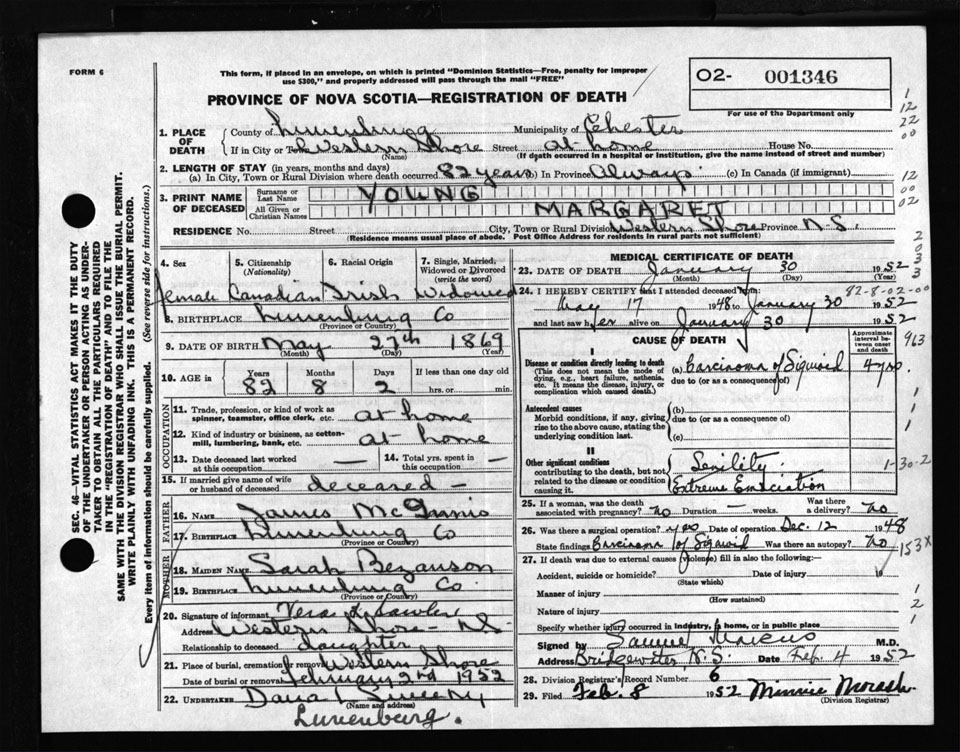 FORM 6
This form, if placed in an envelope, on which is printed "Dominion Statistics—Free, penalty for improper
use $300," and properly addressed will pass through the mail "FREE"
02- 001346
For use of the Department only
PROVINCE OF NOVA SCOTIA—REGISTRATION OF DEATH
1. PLACE OF DEATH
County of Lunenburg Municipality of Chester
If in City or Town Western Shore Street at home House No.
(Name) (If death occurred in a hospital or institution, give the name instead of street and number)
2. LENGTH OF STAY (in years, months and days)
(a) In City, Town or Rural Division where death occurred 82 years (b) In Province Always (c) In Canada (if immigrant)
3. PRINT NAME OF DECEASED
Surname or Last Name YOUNG
All Given or Christian Names MARGARET
RESIDENCE No. Street City, Town or Rural Division Western Shore Province N.S.
(Residence means usual place of abode. Post Office Address for residents in rural parts not sufficient)
4. Sex
5. Citizenship (Nationality)
6. Racial Origin
7. Single, Married, Widowed or Divorced (write the word)
female Canadian Irish Widowed
8. BIRTHPLACE Lunenburg Co
(Province or Country)
9. DATE OF BIRTH May 27th 1869
(Month) (Day) (Year)
10. AGE in Years Months Days If less than one day old
82 8 2 hrs. or min.
OCCUPATION
11. Trade, profession, or kind of work as spinner, teamster, office clerk, etc. at home
12. Kind of industry or business, as cotton-mill, lumbering, bank, etc. at home
13. Date deceased last worked at this occupation — 14. Total yrs. spent in this occupation —
15. If married give name of wife or husband of deceased deceased —
FATHER
16. NAME James McGinnis
17. BIRTHPLACE Lunenburg Co
(Province or Country)
MOTHER
18. MAIDEN NAME Sarah Bezanson
19. BIRTHPLACE Lunenburg Co
(Province or Country)
20. Signature of informant Vera
Address Western Shore N.S.
Relationship to deceased daughter
21. Place of burial, cremation or removal Western Shore
Date of burial or removal February 2nd 1952
22. UNDERTAKER
(Name and address)
Lunenburg.
MEDICAL CERTIFICATE OF DEATH
23. DATE OF DEATH January 30 1952
(Month) (Day) (Year)
24. I HEREBY CERTIFY that I attended deceased from: 82-8-02-00
17 1948 to January 30 1952
and last saw her alive on January 30 1952
CAUSE OF DEATH
Approximate interval between onset and death
I
Disease or condition directly leading to death
(This does not mean the mode of dying, e.g., heart failure, asthenia, etc. It means the disease, injury, or complication which caused death.)
(a) Carcinoma of Sigmoid 4 yrs.
due to (or as a consequence of)
Antecedent causes
Morbid conditions, if any, giving rise to the above cause, stating the underlying condition last.
(b)
due to (or as a consequence of)
(c)
II
Other significant conditions
contributing to the death, but not related to the disease or condition causing it.
Senility
Extreme Emaciation
25. If a woman, was the death associated with pregnancy? no Duration — weeks. Was there a delivery? no
26. Was there a surgical operation? yes Date of operation Dec. 12 1948
State findings Carcinoma of Sigmoid Was there an autopsy? no
27. If death was due to external causes (violence) fill in also the following:—
Accident, suicide or homicide? Date of injury 19
(State which)
Manner of injury
(How sustained)
Nature of injury
Specify whether injury occurred in industry, in home, or in public place
Signed by Marcus M.D.
Address Bridgewater, N.S. Date Feb. 4 1952
28. Division Registrar's Record Number 6
29. Filed Feb. 8 1952 Minnie Morash
(Division Registrar)
1
12
22
00
12
00
02
2
0
3
3
963
1
1
1-30-2
1
153X
1
2
1
SEC. 46—VITAL STATISTICS ACT MAKES IT THE DUTY
OF THE UNDERTAKER OR PERSON ACTING AS UNDER-
TAKER TO OBTAIN ALL THE PARTICULARS REQUIRED
IN THE "REGISTRATION OF DEATH" AND TO FILE THE
SAME WITH THE DIVISION REGISTRAR WHO SHALL ISSUE THE BURIAL PERMIT.
WRITE PLAINLY WITH UNFADING INK. THIS IS A PERMANENT RECORD.
Every item of information should be carefully supplied. (See reverse side for instructions.)